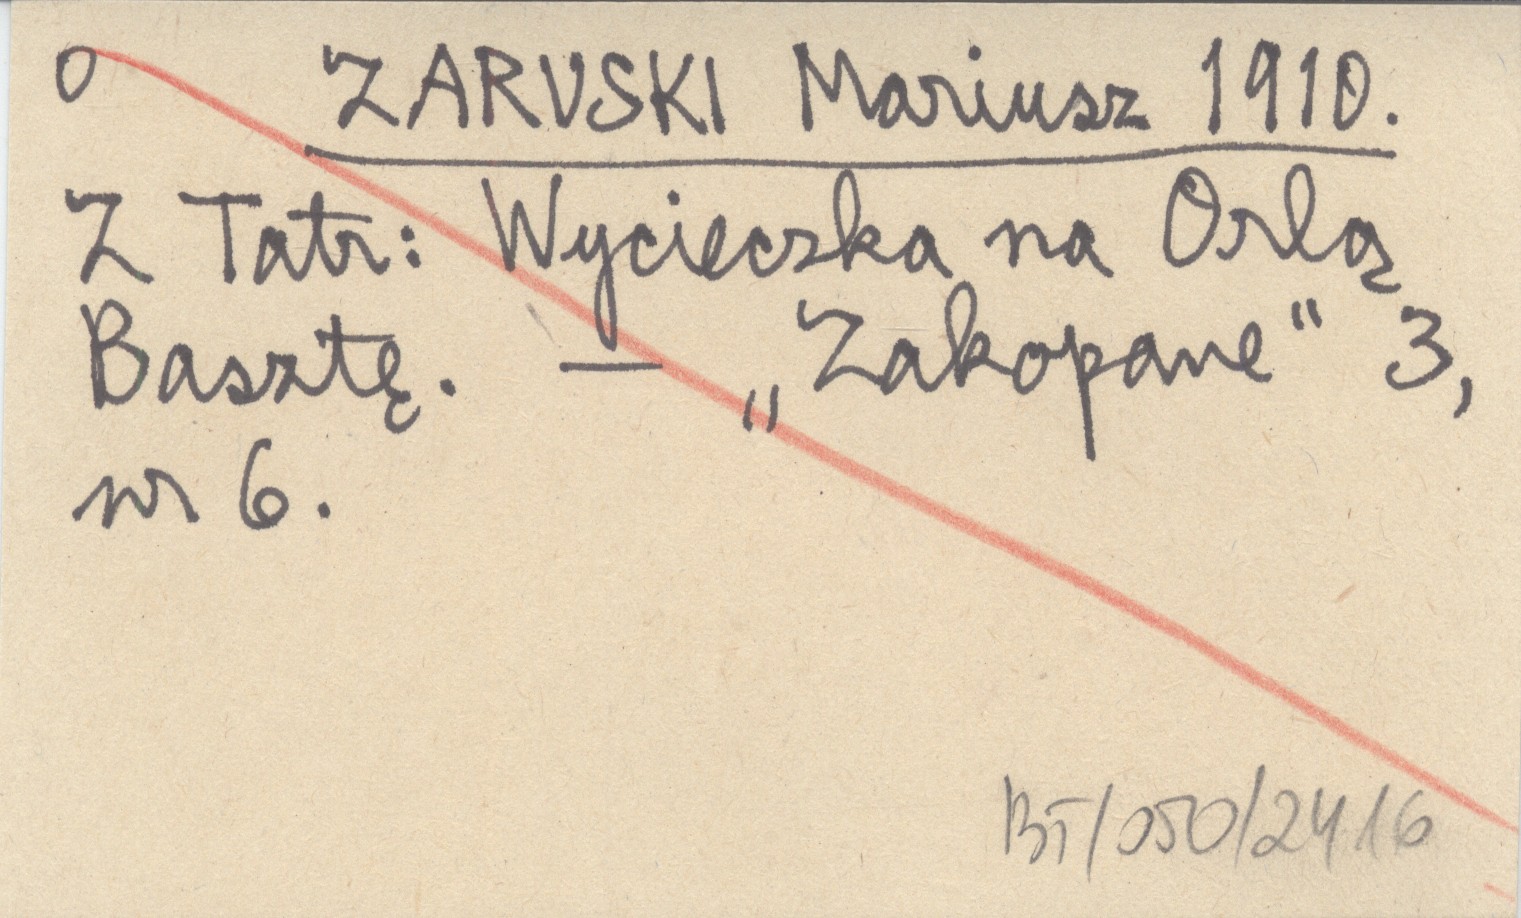 O ZARUSKI Mariusz 1910.
Z Tatr: Wycieczka na Orlą
Basztę. — „Zakopane" 3,
nr 6.
BT/050/2416